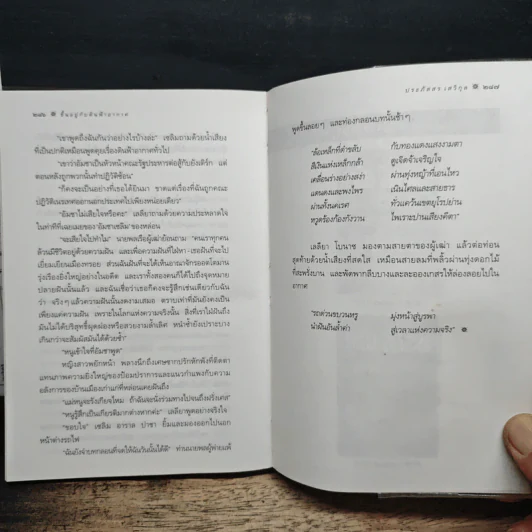 ๒๘๖ ขึ้นอยู่กับดินฟ้าอากาศ
"เขาพูดถึงฉันกันว่าอย่างไรบ้างล่ะ" เซลิมถามด้วยน้ำเสียง
ที่เป็นปกติเหมือนพูดคุยเรื่องดินฟ้าอากาศทั่วไป
"เขาว่าอัมชาเป็นหัวหน้าคณะรัฐประหารต่อสู้กับยังเติร์ก แต่
ตอนหลังถูกพวกนั้นทำปฏิวัติซ้อน"
"ก็คงจะเป็นอย่างที่เธอได้ยินมา ขาดแต่เรื่องที่ฉันถูกคณะ
ปฏิวัติเนรเทศออกนอกประเทศไปเพียงหน่อยเดียว"
"อัมชาไม่เสียใจหรือคะ" เลลียาถามด้วยความประหลาดใจ
ในท่าทีที่เฉยเมยของ 'อัมชาเซลิม' ของหล่อน
"จะเสียใจไปทำไม" นายพลเรือผู้เฒ่าย้อนถาม "คนเราทุกคน
ล้วนมีชีวิตอยู่ด้วยความฝัน และเพื่อความฝันที่ไม่หา
เยียบเมืองทรอย ส่วนฉันฝันที่จะได้เห็นอาณาจักรออตโตมาน
รุ่งเรืองยิ่งใหญ่อย่างในอดีต และเราทั้งสองคนก็ได้ไปถึงจุดหมาย
ปลายฝันนั้นแล้ว และฉันเชื่อว่าเธอก็คงจะรู้สึกเช่นเดียวกับฉัน
ว่า จริงๆ แล้วความฝันนั้นงดงามเสมอ ตราบเท่าที่มันยังคงเป็น
เพียงแค่ความฝัน เพราะในโลกแห่งความจริงนั้น สิ่งที่เราไม่ได้ฝัน
มันไม่ได้บริสุทธิ์ผุดผ่องหรือสวยงามล้ำเลิศ หน้าซ้ำยังเปราะบาง
เกินกว่าจะสัมผัสมันได้ด้วยซ้ำ"
"หนูเข้าใจที่อัมชาพูด"
หญิงสาวพยักหน้า พลางนึกถึงเศษซากปรักหักพังที่ติดตา
แทนภาพความยิ่งใหญ่ของป้อมปราการและแนวกำแพงกับความ
อลังการของบ้านเมืองเก่าแก่ที่หล่อนเคยฝันถึง
"แม่หนูจะรังเกียจไหม ถ้าฉันจะนั่งร่วมทางไปจนถึงฝรั่งเศส"
"หนูรู้สึกเป็นเกียรติมากต่างหากค่ะ" เลลียาพูดอย่างจริงใจ
"ขอบใจ" เซลิม อาราล ปาชา ยิ้มและมองออกไปนอก
หน้าต่างรถไฟ
"ฉันยังจำบทกลอนที่จดให้ฉันวันนั้นได้ดี" ท่านนายพลผู้พ่ายแพ้
ประภัสสร เสวิกุล ๒๘๗
พูดขึ้นลอยๆ และท่องกลอนบทนั้นช้าๆ
"ล้อเหล็กที่ดำขลับ กับทองแดงแดงงามตา
สีเงินแห่งเหล็กกล้า สูงจิตจำเจริญใจ
เคลื่อนร่างอย่างสง่า ผ่านทุ่งหญ้าที่เอนไหว
แดนดงและพงไพร เนินไศลและสายธาร
ผ่านทั้งนคเรศ ทั่วแคว้นเขตยุโรปย่าน
หวูดร้องก้องกังวาน ไพเราะปานเสียงคีตา"
เลลียา โบนาช มองตามสายตาของผู้เฒ่า แล้วต่อท่อน
สุดท้ายด้วยน้ำเสียงที่สดใส เหมือนสายลมที่พลิ้วผ่านทุ่งดอกไม้
ที่สะพรั่งบาน และพัดพากลีบบางและละอองเกสรให้ล่องลอยไปใน
อากาศ
"รถด่วนขบวนหรู มุ่งหน้าสู่บูรพา
นำฝันอันล้ำค่า สู่เวลาแห่งความจริง"